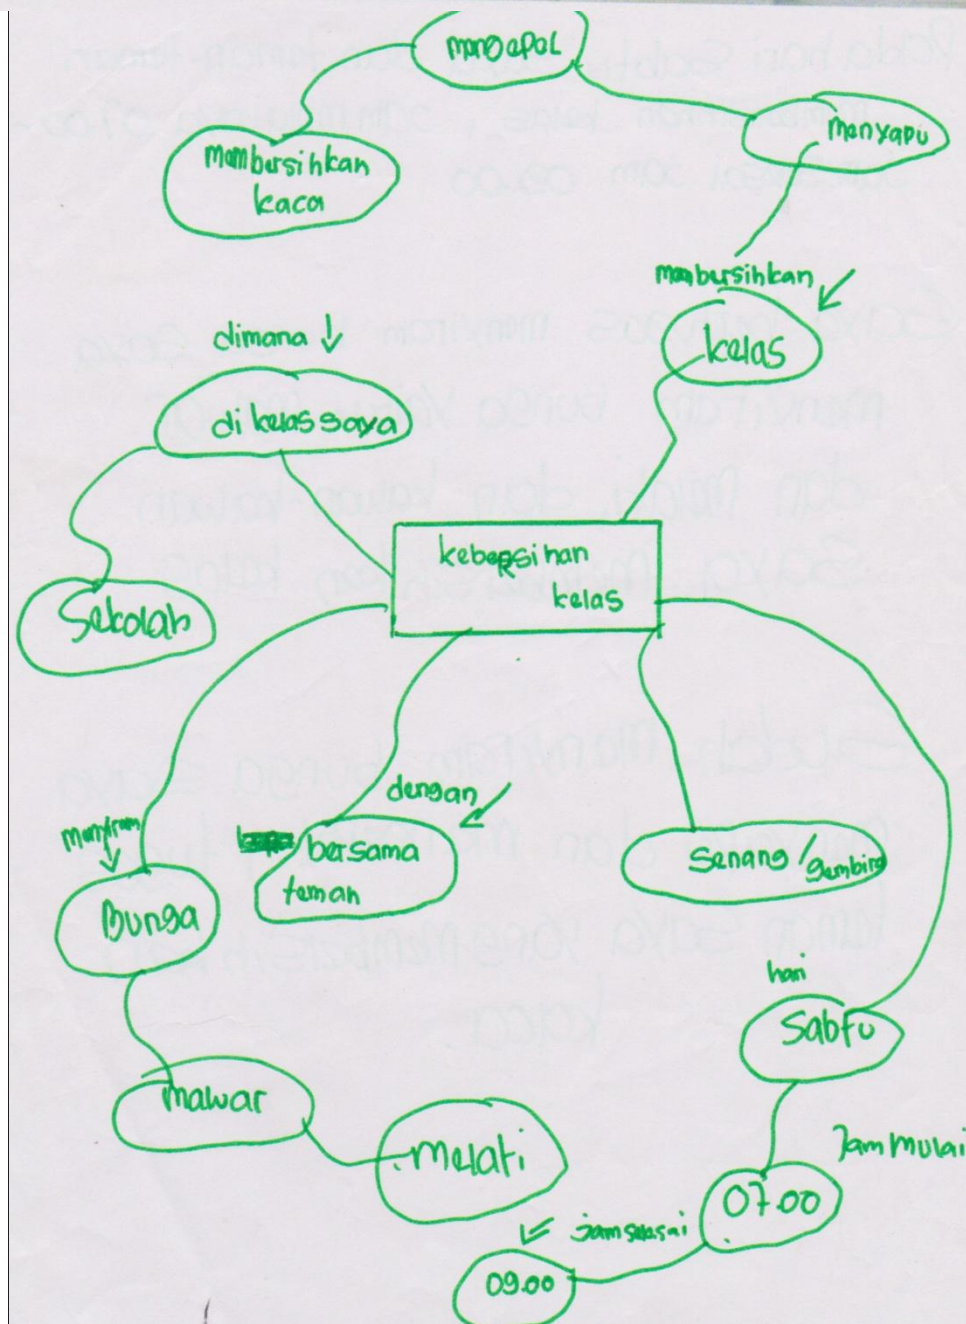 mengepal
membersihkan
kaca
menyapu
membersihkan
kelas
dimana
di kelas saya
Sekolah
kebersihan
kelas
menyiram
Bunga
mawar
melati
dengan
bersama
teman
Senang / gembira
hari
Sabtu
Jam mulai
07.00
jam selesai
09.00